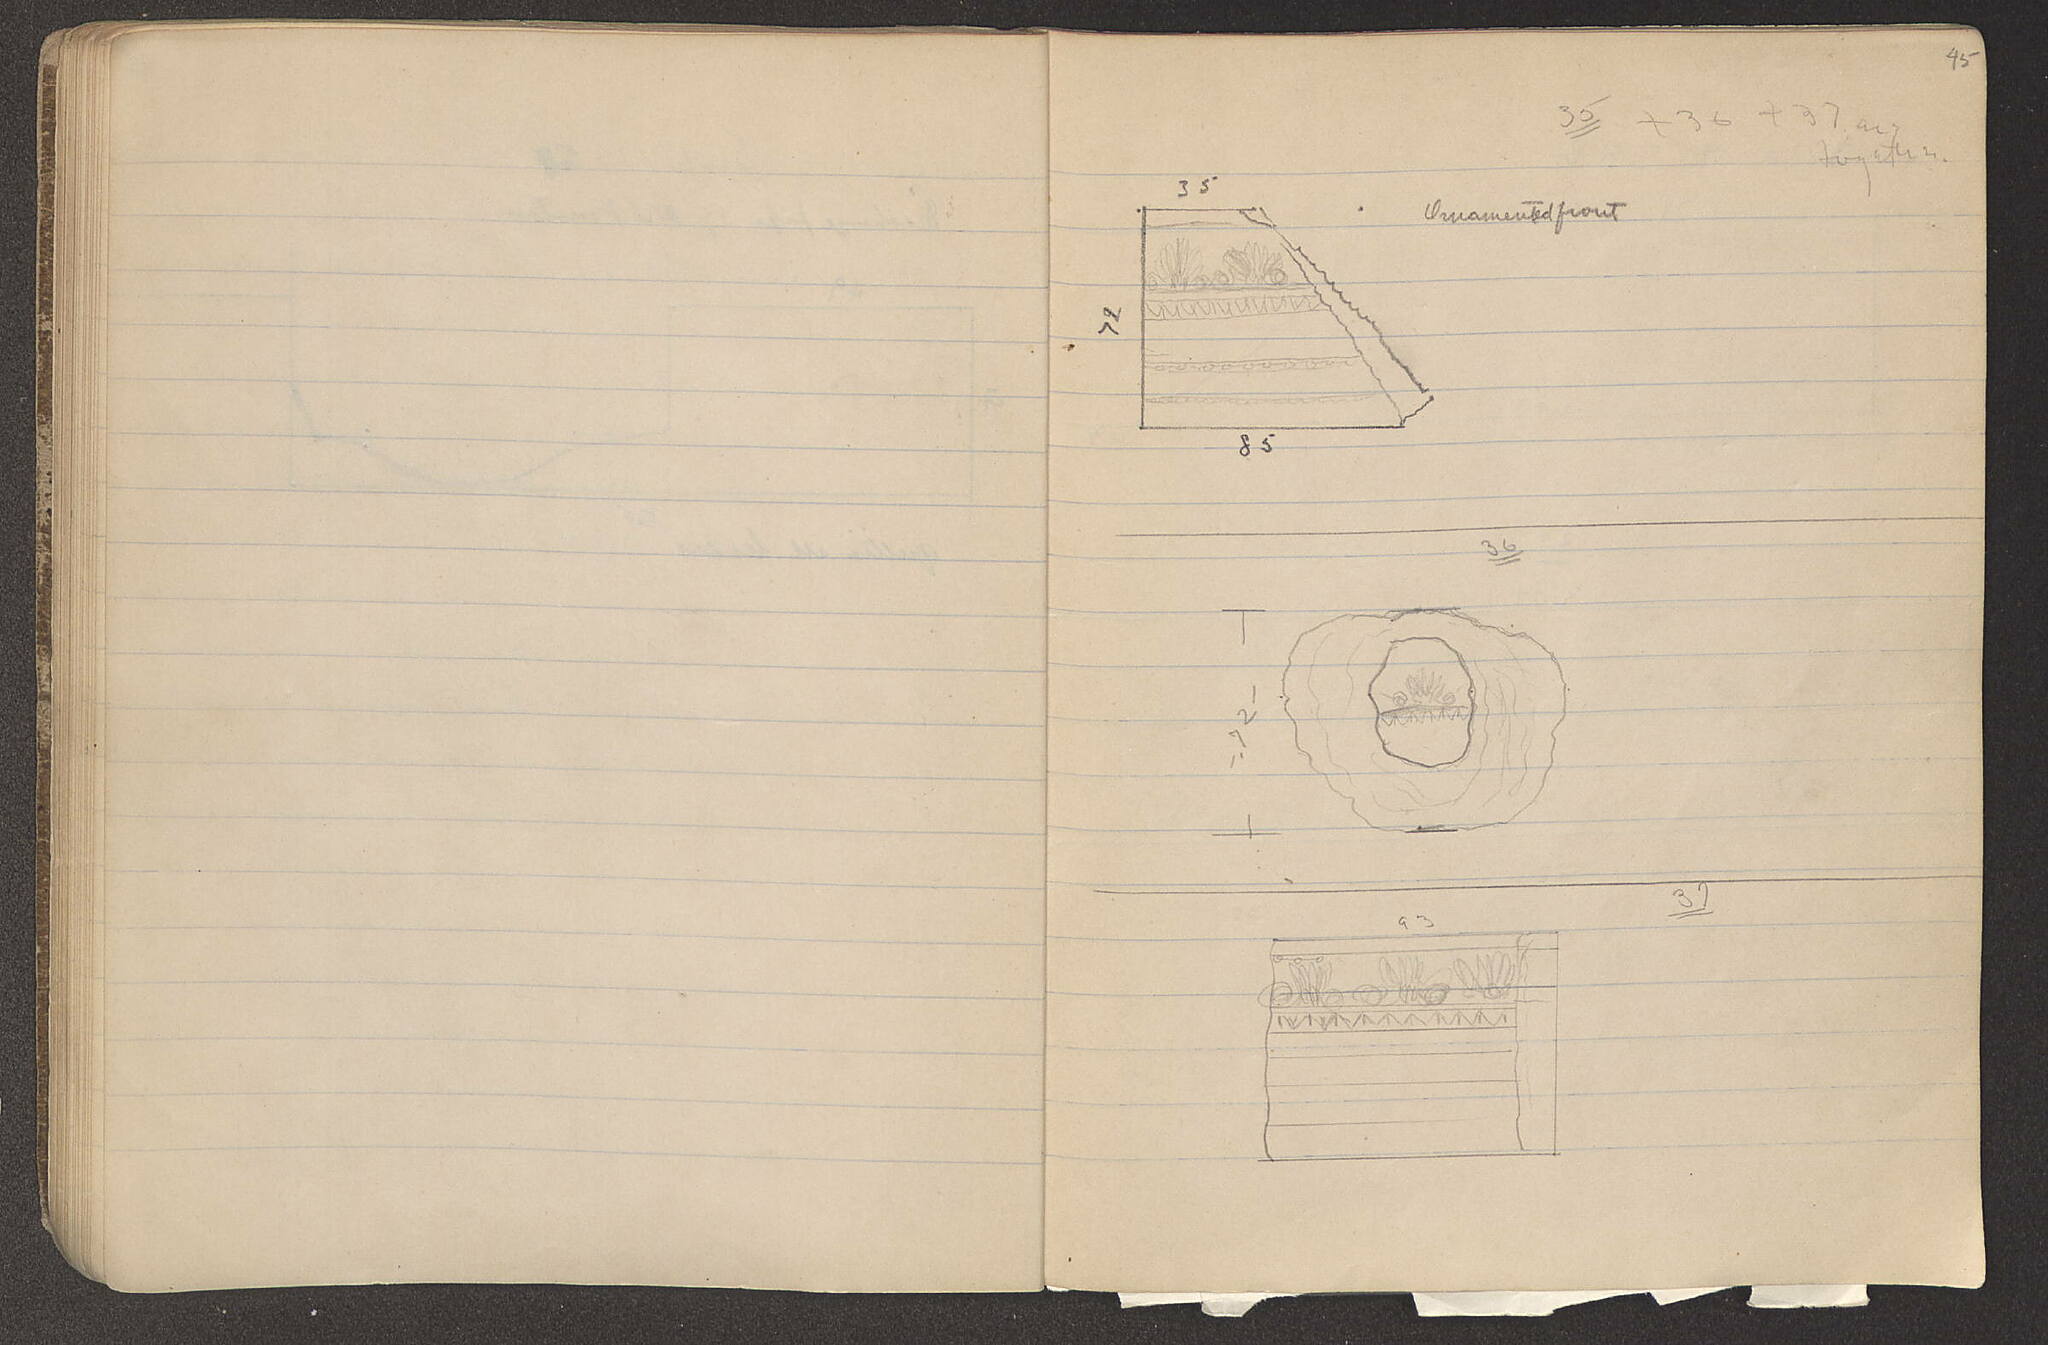 45
35 + 36 + 37 are
together.
35
Ornamented front
72
85
36
72
37
93